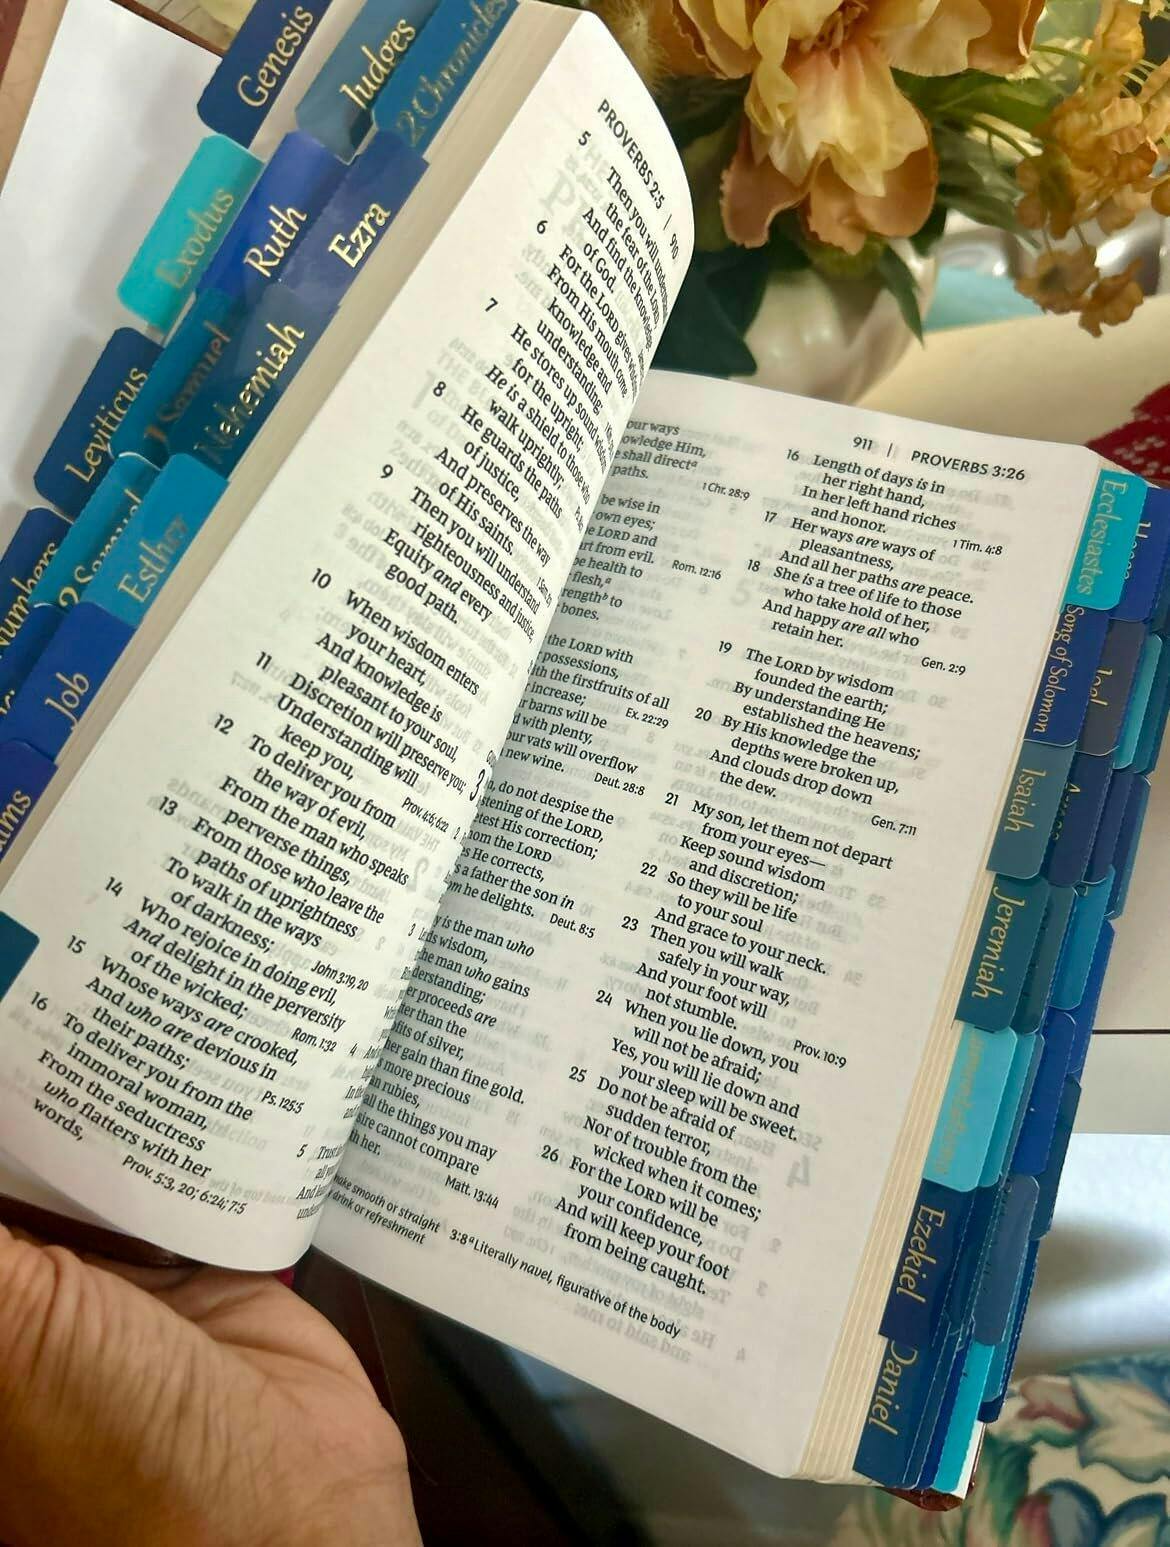 Genesis
Judges
2 Chronicles
Exodus
Ruth
Ezra
Leviticus
1 Samuel
Nehemiah
Numbers
2 Samuel
Esther
Job
PROVERBS 2:5 | 910
5 Then you will understand
the fear of the LORD,
And find the knowledge
of God.
6 For the LORD gives wisdom;
From His mouth come
knowledge and
understanding;
7 He stores up sound wisdom
for the upright;
He is a shield to those who
walk uprightly;
8 He guards the paths
of justice,
And preserves the way
of His saints.
9 Then you will understand
righteousness and justice,
Equity and every
good path.
10 When wisdom enters
your heart,
And knowledge is
pleasant to your soul,
11 Discretion will preserve you;
Understanding will
keep you,
Prov. 4:6; 6:22
12 To deliver you from
the way of evil,
From the man who speaks
perverse things,
13 From those who leave the
paths of uprightness
To walk in the ways
of darkness;
John 3:19, 20
14 Who rejoice in doing evil,
And delight in the perversity
of the wicked;
Rom. 1:32
15 Whose ways are crooked,
And who are devious in
their paths;
Ps. 125:5
16 To deliver you from the
immoral woman,
From the seductress
who flatters with her
words,
Prov. 5:3, 20; 6:24; 7:5
911 | PROVERBS 3:26
ways
Him,
shall directᵃ
paths.
1 Chr. 28:9
be wise in
own eyes;
LORD and
from evil.
Rom. 12:16
health to
flesh,ᵃ
to
bones.
the LORD with
possessions,
the firstfruits of all
increase;
Ex. 22:29
barns will be
with plenty,
vats will overflow
new wine.
Deut. 28:8
do not despise the
of the LORD,
His correction;
the LORD
He corrects,
a father the son in
he delights.
Deut. 8:5
is the man who
wisdom,
the man who gains
proceeds are
than the
of silver,
gain than fine gold.
more precious
rubies,
all the things you may
cannot compare
her.
Matt. 13:44
16 Length of days is in
her right hand,
In her left hand riches
and honor.
1 Tim. 4:8
17 Her ways are ways of
pleasantness,
And all her paths are peace.
18 She is a tree of life to those
who take hold of her,
And happy are all who
retain her.
Gen. 2:9
19 The LORD by wisdom
founded the earth;
By understanding He
established the heavens;
20 By His knowledge the
depths were broken up,
And clouds drop down
the dew.
Gen. 7:11
21 My son, let them not depart
from your eyes—
Keep sound wisdom
and discretion;
22 So they will be life
to your soul
And grace to your neck.
23 Then you will walk
safely in your way,
And your foot will
not stumble.
Prov. 10:9
24 When you lie down, you
will not be afraid;
Yes, you will lie down and
your sleep will be sweet.
25 Do not be afraid of
sudden terror,
Nor of trouble from the
wicked when it comes;
26 For the LORD will be
your confidence,
And will keep your foot
from being caught.
make smooth or straight
drink or refreshment
3:8 ᵃLiterally navel, figurative of the body
Ecclesiastes
Song of Solomon
Joel
Isaiah
Jeremiah
Ezekiel
Daniel